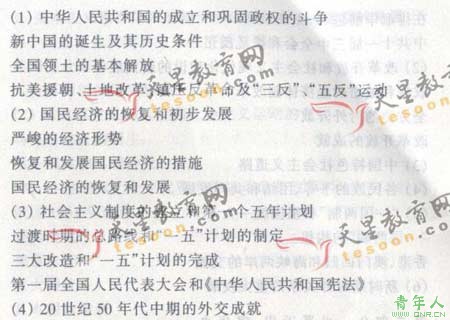 (1) 中华人民共和国的成立和巩固政权的斗争
新中国的诞生及其历史条件
全国领土的基本解放
抗美援朝、土地改革、镇压反革命及“三反”、“五反”运动
(2) 国民经济的恢复和初步发展
严峻的经济形势
恢复和发展国民经济的措施
国民经济的恢复和发展
(3) 社会主义制度的建立和第一个五年计划
过渡时期的总路线和“一五”计划的制定
三大改造和“一五”计划的完成
第一届全国人民代表大会和《中华人民共和国宪法》
(4) 20世纪50年代中期的外交成就
天星教育网
tesoon.com
天星教育网
tesoon.com
天星教育网
tesoon.com
天星教育网
tesoon.com
青年人
www.QNR.CN